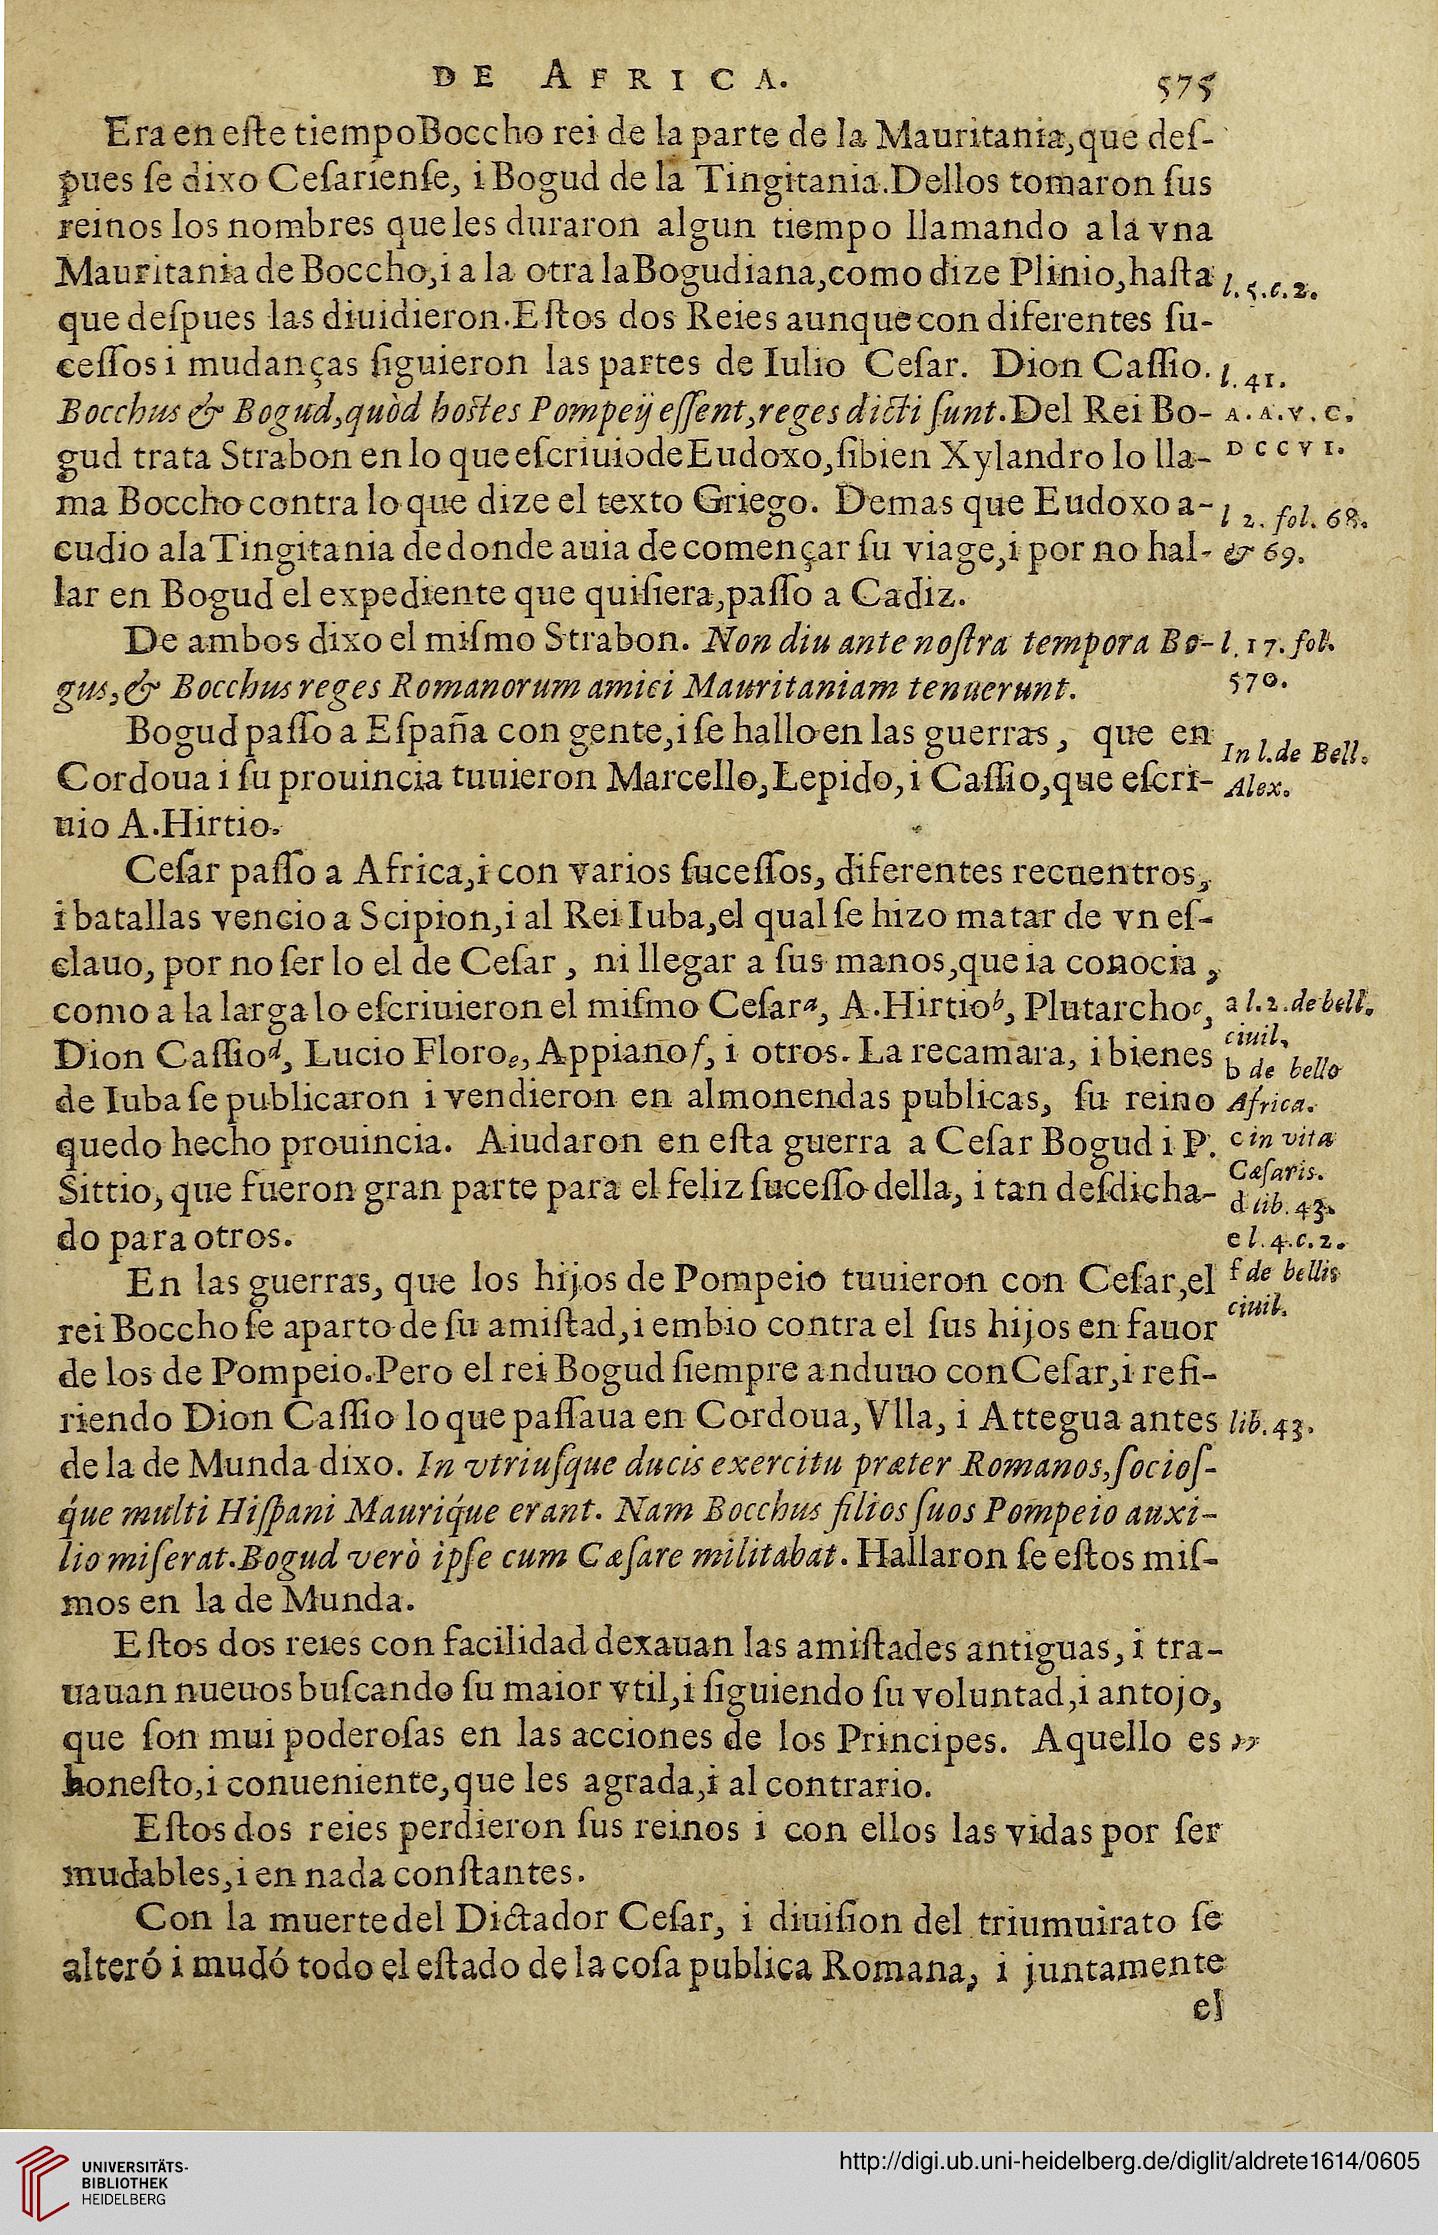 DE AFRICA. 575
Era en eſte tiempo Boccho rei de la parte de la Mauritania, que deſ-
pues ſe dixo Ceſarienſe, i Bogud de la Tingitania. Dellos tomaron ſus
reinos los nombres que les duraron algun tiempo llamando a la vna
Mauritania de Boccho, i a la otra la Bogudiana, como dize Plinio, haſta
l. 5. c. 2.
que deſpues las diuidieron. Eſtos dos Reies aunque con diferentes ſu-
ceſſos i mudanças ſiguieron las partes de Iulio Ceſar. Dion Caſſio.
l. 41.
Bocchus & Bogud, quòd hostes Pompeij eſſent, reges dicti ſunt. Del Rei Bo-
A. A. V. C.
gud trata Strabon en lo que eſcriuio de Eudoxo, ſibien Xylandro lo lla-
DCCVI.
ma Boccho contra lo que dize el texto Griego. Demas que Eudoxo a-
l 2. fol. 68.
cudio a la Tingitania de donde auia de començar ſu viage, i por no hal-
& 69.
lar en Bogud el expediente que quiſiera, paſſo a Cadiz.
De ambos dixo el miſmo Strabon. Non diu ante noſtra tempora Bo-
l. 17. fol.
gus, & Bocchus reges Romanorum amici Mauritaniam tenuerunt.
570.
Bogud paſſo a Eſpaña con gente, i ſe hallo en las guerras, que en
In l. de Bell.
Cordoua i ſu prouincia tuuieron Marcello, Lepido, i Caſſio, que eſcri-
Alex.
uio A. Hirtio.
Ceſar paſſo a Africa, i con varios ſuceſſos, diferentes recuentros,
i batallas vencio a Scipion, i al Rei Iuba, el qual ſe hizo matar de vn eſ-
clauo, por no ſer lo el de Ceſar, ni llegar a ſus manos, que ia conocia,
como a la larga lo eſcriuieron el miſmo Ceſar a, A. Hirtio b, Plutarcho c,
a l. 2. de bell.
ciuil.
Dion Caſſio d, Lucio Floro e, Appiano f, i otros. La recamara, i bienes
b de bello
de Iuba ſe publicaron i vendieron en almonendas publicas, ſu reino
Africa.
quedo hecho prouincia. Aiudaron en eſta guerra a Ceſar Bogud i P.
c in vita
Cæſaris.
Sittio, que fueron gran parte para el feliz ſuceſſo della, i tan deſdicha-
d lib. 43.
do para otros.
e l. 4. c. 2.
En las guerras, que los hijos de Pompeio tuuieron con Ceſar, el
f de bellis
ciuil.
rei Boccho ſe aparto de ſu amiſtad, i embio contra el ſus hijos en fauor
de los de Pompeio. Pero el rei Bogud ſiempre anduuo con Ceſar, i refi-
riendo Dion Caſſio lo que paſſaua en Cordoua, Vlla, i Attegua antes
lib. 43.
de la de Munda dixo. In vtriuſque ducis exercitu præter Romanos, ſocioſ-
q́ue multi Hiſpani Mauriq́ue erant. Nam Bocchus filios ſuos Pompeio auxi-
lio miſerat. Bogud verò ipſe cum Cæſare militabat. Hallaron ſe eſtos miſ-
mos en la de Munda.
Eſtos dos reies con facilidad dexauan las amiſtades antiguas, i tra-
uauan nueuos buſcando ſu maior vtil, i ſiguiendo ſu voluntad, i antojo,
que ſon mui poderoſas en las acciones de los Principes. Aquello es
,,
honeſto, i conueniente, que les agrada, i al contrario.
Eſtos dos reies perdieron ſus reinos i con ellos las vidas por ſer
mudables, i en nada conſtantes.
Con la muerte del Dictador Ceſar, i diuiſion del triumuirato ſe
alteró i mudó todo el eſtado de la coſa publica Romana, i juntamente
el
UNIVERSITÄTS-
BIBLIOTHEK
HEIDELBERG
http://digi.ub.uni-heidelberg.de/diglit/aldrete1614/0605